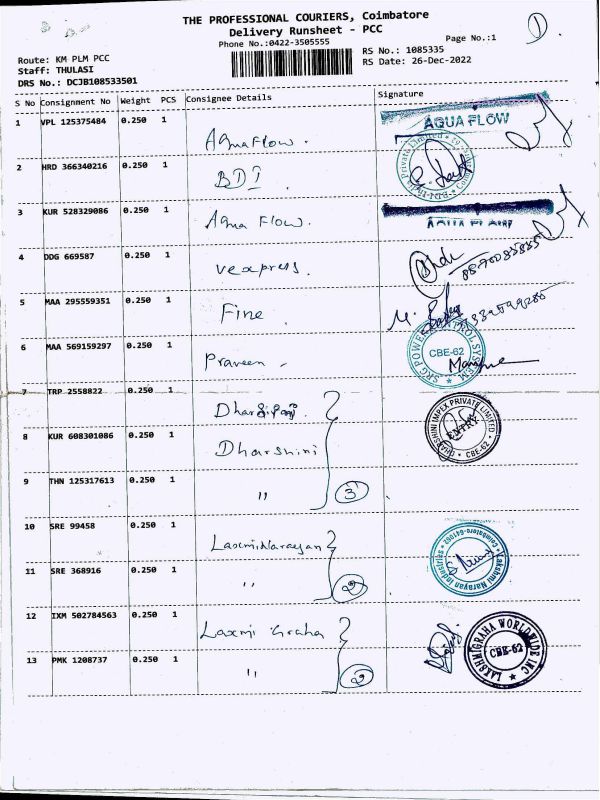 THE PROFESSIONAL COURIERS, Coimbatore
Delivery Runsheet - PCC
Phone No.:0422-3505555
Page No.:1
Route: KM PLM PCC
Staff: THULASI
DRS No.: DCJB108533501
RS No.: 1085335
RS Date: 26-Dec-2022
S No Consignment No Weight PCS Consignee Details Signature
1 VPL 125375484 0.250 1 Aquaflow. AQUA FLOW
2 HRD 366340216 0.250 1 BDI
3 KUR 528329086 0.250 1 Aqua Flow. AQUA FLOW
4 DDG 669587 0.250 1 vexpress.
5 MAA 295559351 0.250 1 Fine
6 MAA 569159297 0.250 1 Praveen SRG POWER CONTROL SYSTEM CBE-62
7 TRP 2558822 0.250 1
8 KUR 608301086 0.250 1 Dharshini DHARSHINI IMPEX PRIVATE LIMITED ENTRY CBE-62
9 THN 125317613 0.250 1 " 3
10 SRE 99458 0.250 1 LaxmiNarayan Lakshmi Narayan Industries Coimbatore-641062
11 SRE 368916 0.250 1 " 2
12 IXM 502784563 0.250 1 Laxmi Graha LAKSHMIGRAHA WORLDWIDE INC CBE-62
13 PMK 1208737 0.250 1 " 2